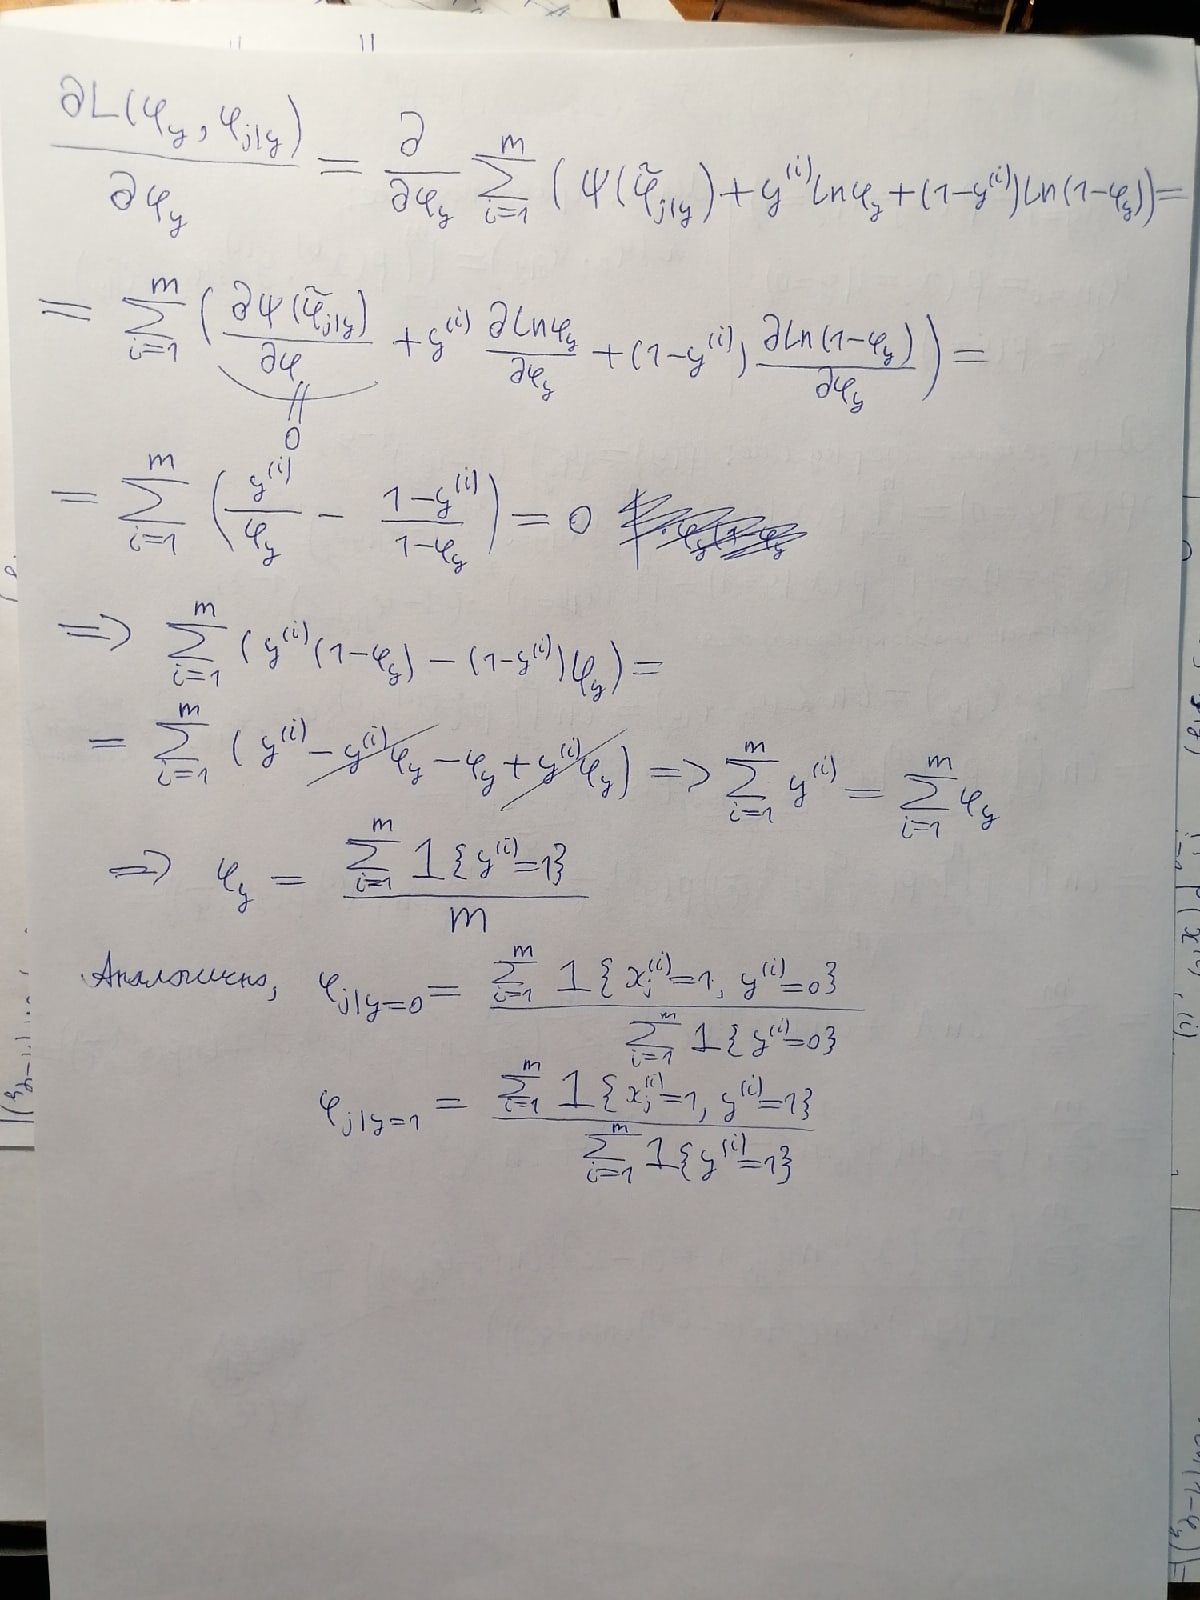 ∂L(φ_y, φ_{j|y}) / ∂φ_y = ∂/∂φ_y ∑_{i=1}^{m} (Ψ(φ̃_{j|y}) + y^{(i)} ln φ_y + (1-y^{(i)}) ln(1-φ_y)) =
= ∑_{i=1}^{m} (∂Ψ(φ̃_{j|y}) / ∂φ + y^{(i)} ∂ln φ_y / ∂φ_y + (1-y^{(i)}) ∂ln(1-φ_y) / ∂φ_y) =
|| 0
= ∑_{i=1}^{m} (y^{(i)} / φ_y - (1-y^{(i)}) / (1-φ_y)) = 0
=> ∑_{i=1}^{m} (y^{(i)}(1-φ_y) - (1-y^{(i)})φ_y) =
= ∑_{i=1}^{m} (y^{(i)} - y^{(i)}φ_y - φ_y + y^{(i)}φ_y) => ∑_{i=1}^{m} y^{(i)} = ∑_{i=1}^{m} φ_y
=> φ_y = ∑_{i=1}^{m} 1{y^{(i)}=1} / m
Аналогично, φ_{j|y=0} = ∑_{i=1}^{m} 1{x_j^{(i)}=1, y^{(i)}=0} / ∑_{i=1}^{m} 1{y^{(i)}=0}
φ_{j|y=1} = ∑_{i=1}^{m} 1{x_j^{(i)}=1, y^{(i)}=1} / ∑_{i=1}^{m} 1{y^{(i)}=1}